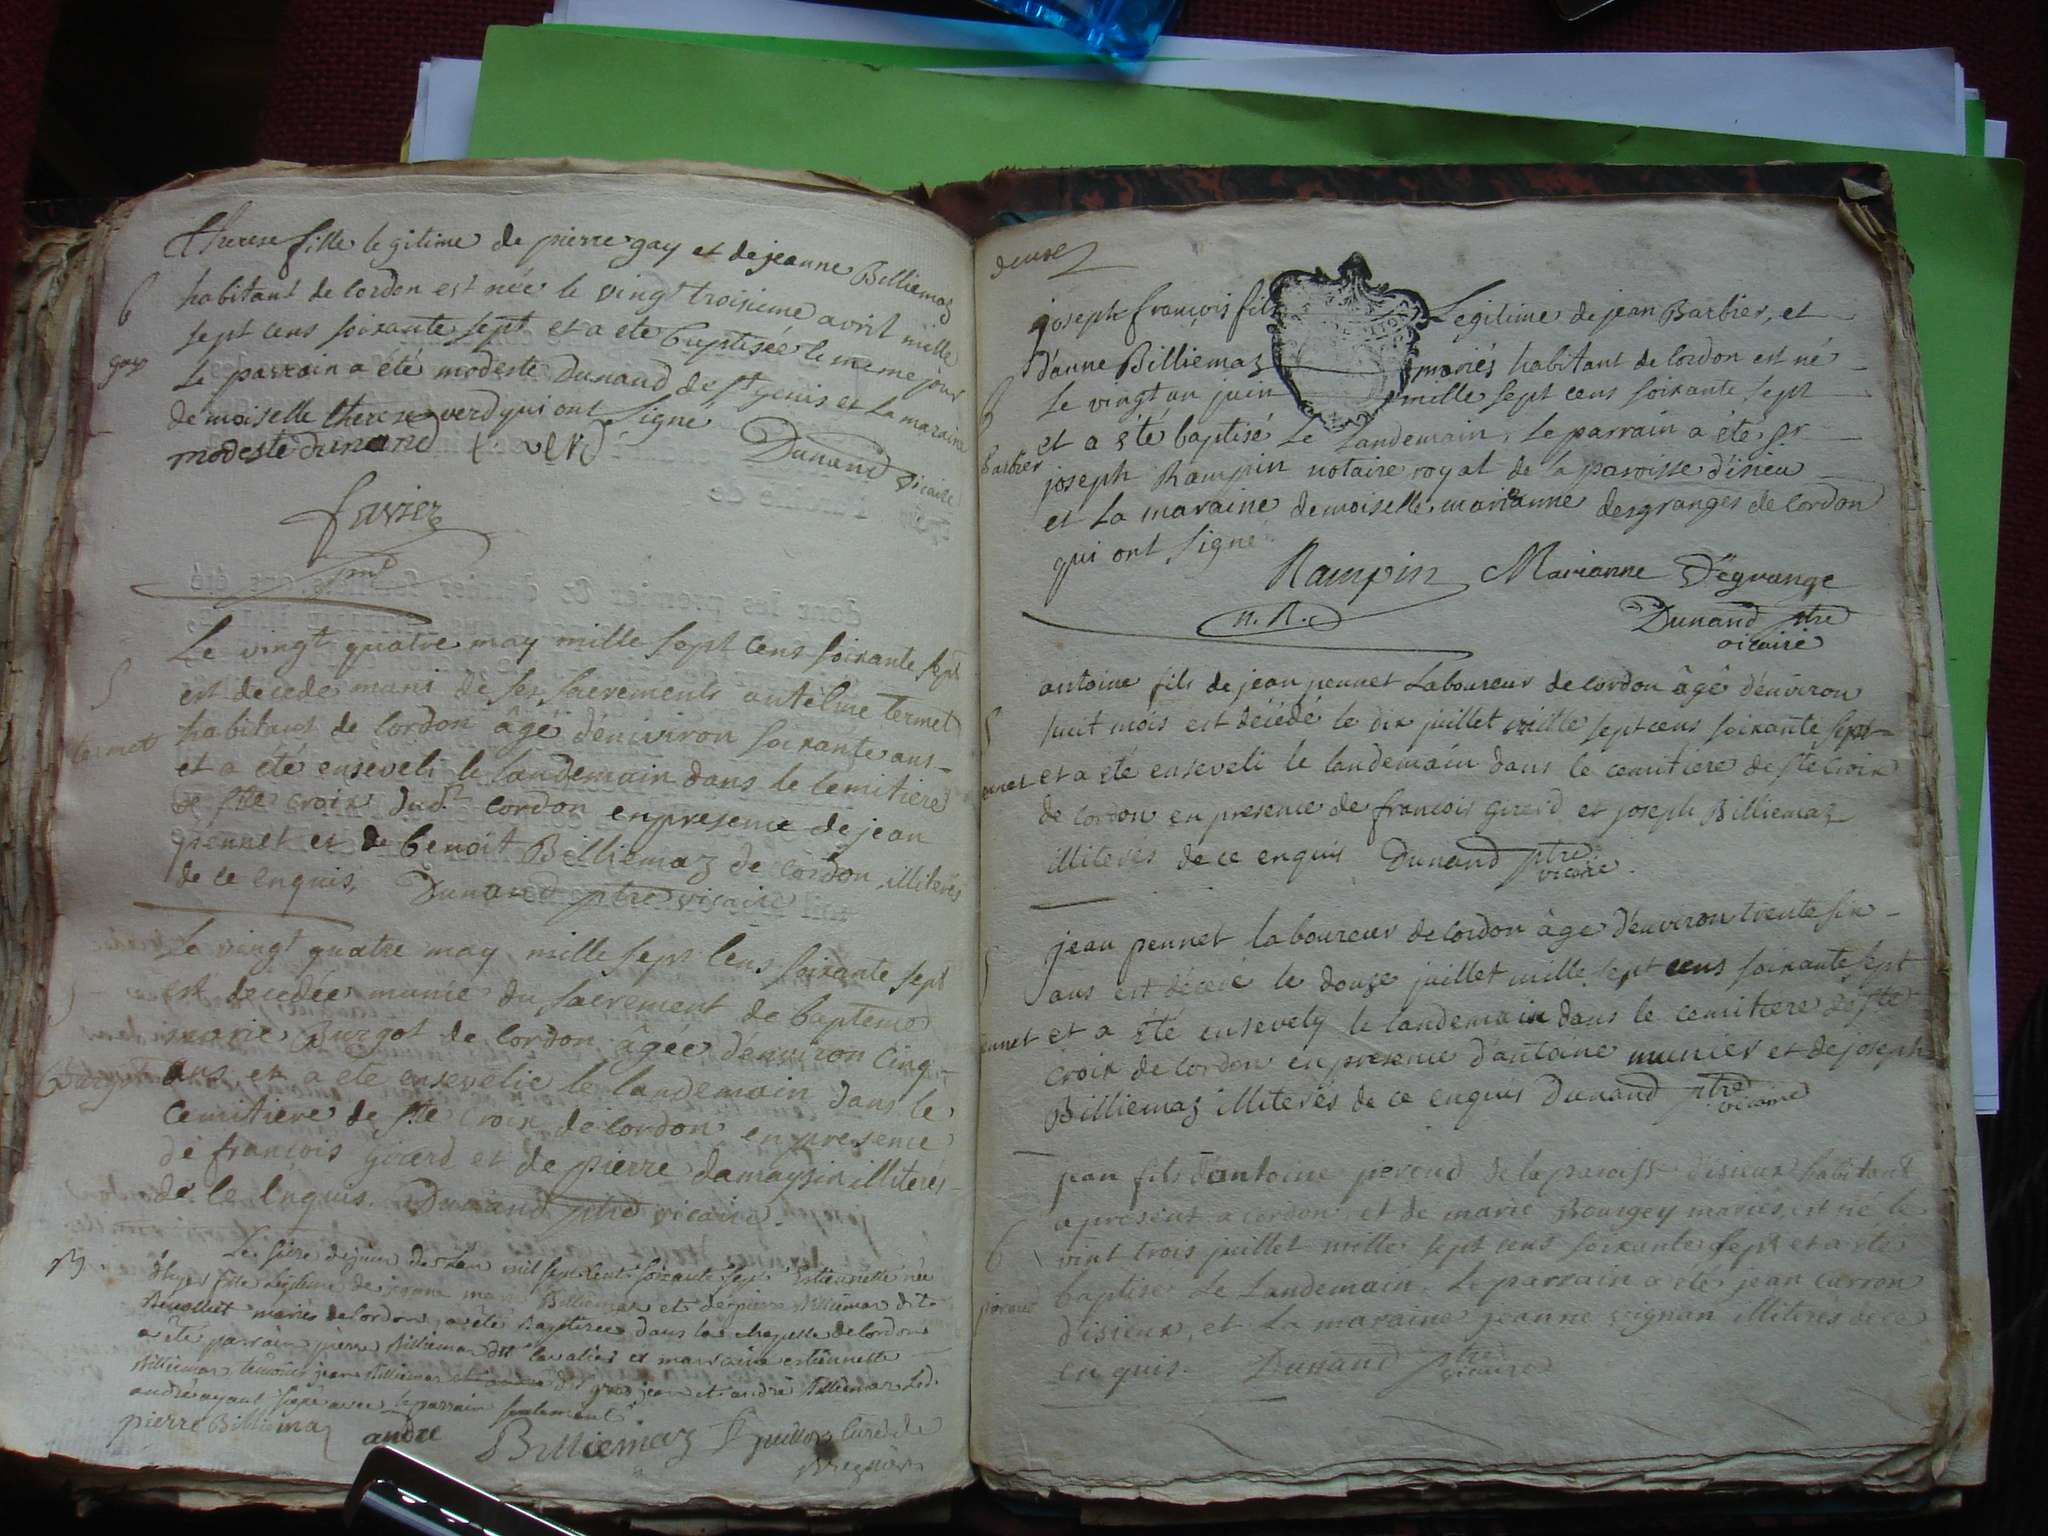 therese fille legitime de pierre gay et de jeanne Billiemaz
6 habitant de Cordon est née le vingt troisieme avril mille
sept cens soixante sept et a eté baptisée le meme jour
gay
Le parrain a été modeste Dunand de st genis et la maraine
demoiselle therese verd qui ont signé
modeste dunand t. verd Dunand vicaire
favier
Le vingt quatre may mille sept cens soixante sept
5 est decede muni de ses sacrements antelme Termet
termet habitant de Cordon âgé d'enuiviron soixante ans
et a été enseveli le landemain dans le Cemitiere
de ste croix dud. cordon en presence de jean
pennet et de benoit Billiemaz de cordon illiterés
de ce enquis, Dunand ptre vicaire
Le vingt quatre may mille sept Cens soixante sept
est decedée munie du sacrement de baptême
marie Burgot de Cordon âgée d'environ cinq
Burgot ans et a eté ensevelie le landemain dans le
Cemitiere de ste Croix de Cordon en presence
de françois girerd et de pierre damaysin illiterés
de ce enquis. Dunand ptre vicaire.
Le seize de juin de l'an mil sept cent soixante sept Estiennette née
d'hyer fille legitime de jeanne marie Billiemaz et de pierre Billiemaz dit
Benollet mariés de Cordon, a été Baptisée dans la chapelle de Cordon
a été parrain pierre Billiemaz dit cavalier et marraine estiennette
Billiemaz temoins jean Billiemaz dit gros jean et andré Billiemaz led.
andré ayant signé avec le parrain seulement
pierre Billiemaz andre Billiemaz guillon Curé de
Bregnier
deuxe
joseph françois fils Legitime de jean Barbier, et
d'anne Billiemaz mariés habitant de Cordon est né
6 Le vingt un juin mille sept cens soixante sept
et a été baptisé Le Landemain, Le parrain a été sr
barbier
joseph Rampin notaire royal de la paroisse d'isieu
et La maraine demoiselle marianne desgranges de Cordon
qui ont signé
Rampin Marianne Dégrange
n. R. Dunand ptre
vicaire
antoine fils de jean pennet Laboureur de Cordon âgé d'environ
5 huit mois est décédé le dix juillet mille sept cens soixante sept
ennet et a été enseveli le landemain dans le cemitiere de ste Croix
de Cordon en presence de francois girerd et joseph Billiemaz
illiterés de ce enquis Dunand ptre
vicaire.
jean pennet laboureur de Cordon âgé d'environ trente six
5 ans est décédé le douze juillet mille sept cens soixante sept
ennet et a été ensevely le landemain dans le cemitiere de ste
croix de Cordon en presence d'antoine munier et de joseph
Billiemaz illiterés de ce enquis Dunand ptre
vicaire
jean fils d'antoine peroud de la paroisse d'isieux habitant
apresent a cordon et de marie Bourgey mariés, est né le
6 vint trois juillet mille sept cens soixante sept et a été
peroud baptisé Le Landemain. Le parrain a été jean Carron
d'isieux, et La maraine jeanne illiterés de ce
enquis. Dunand ptre
vicaire